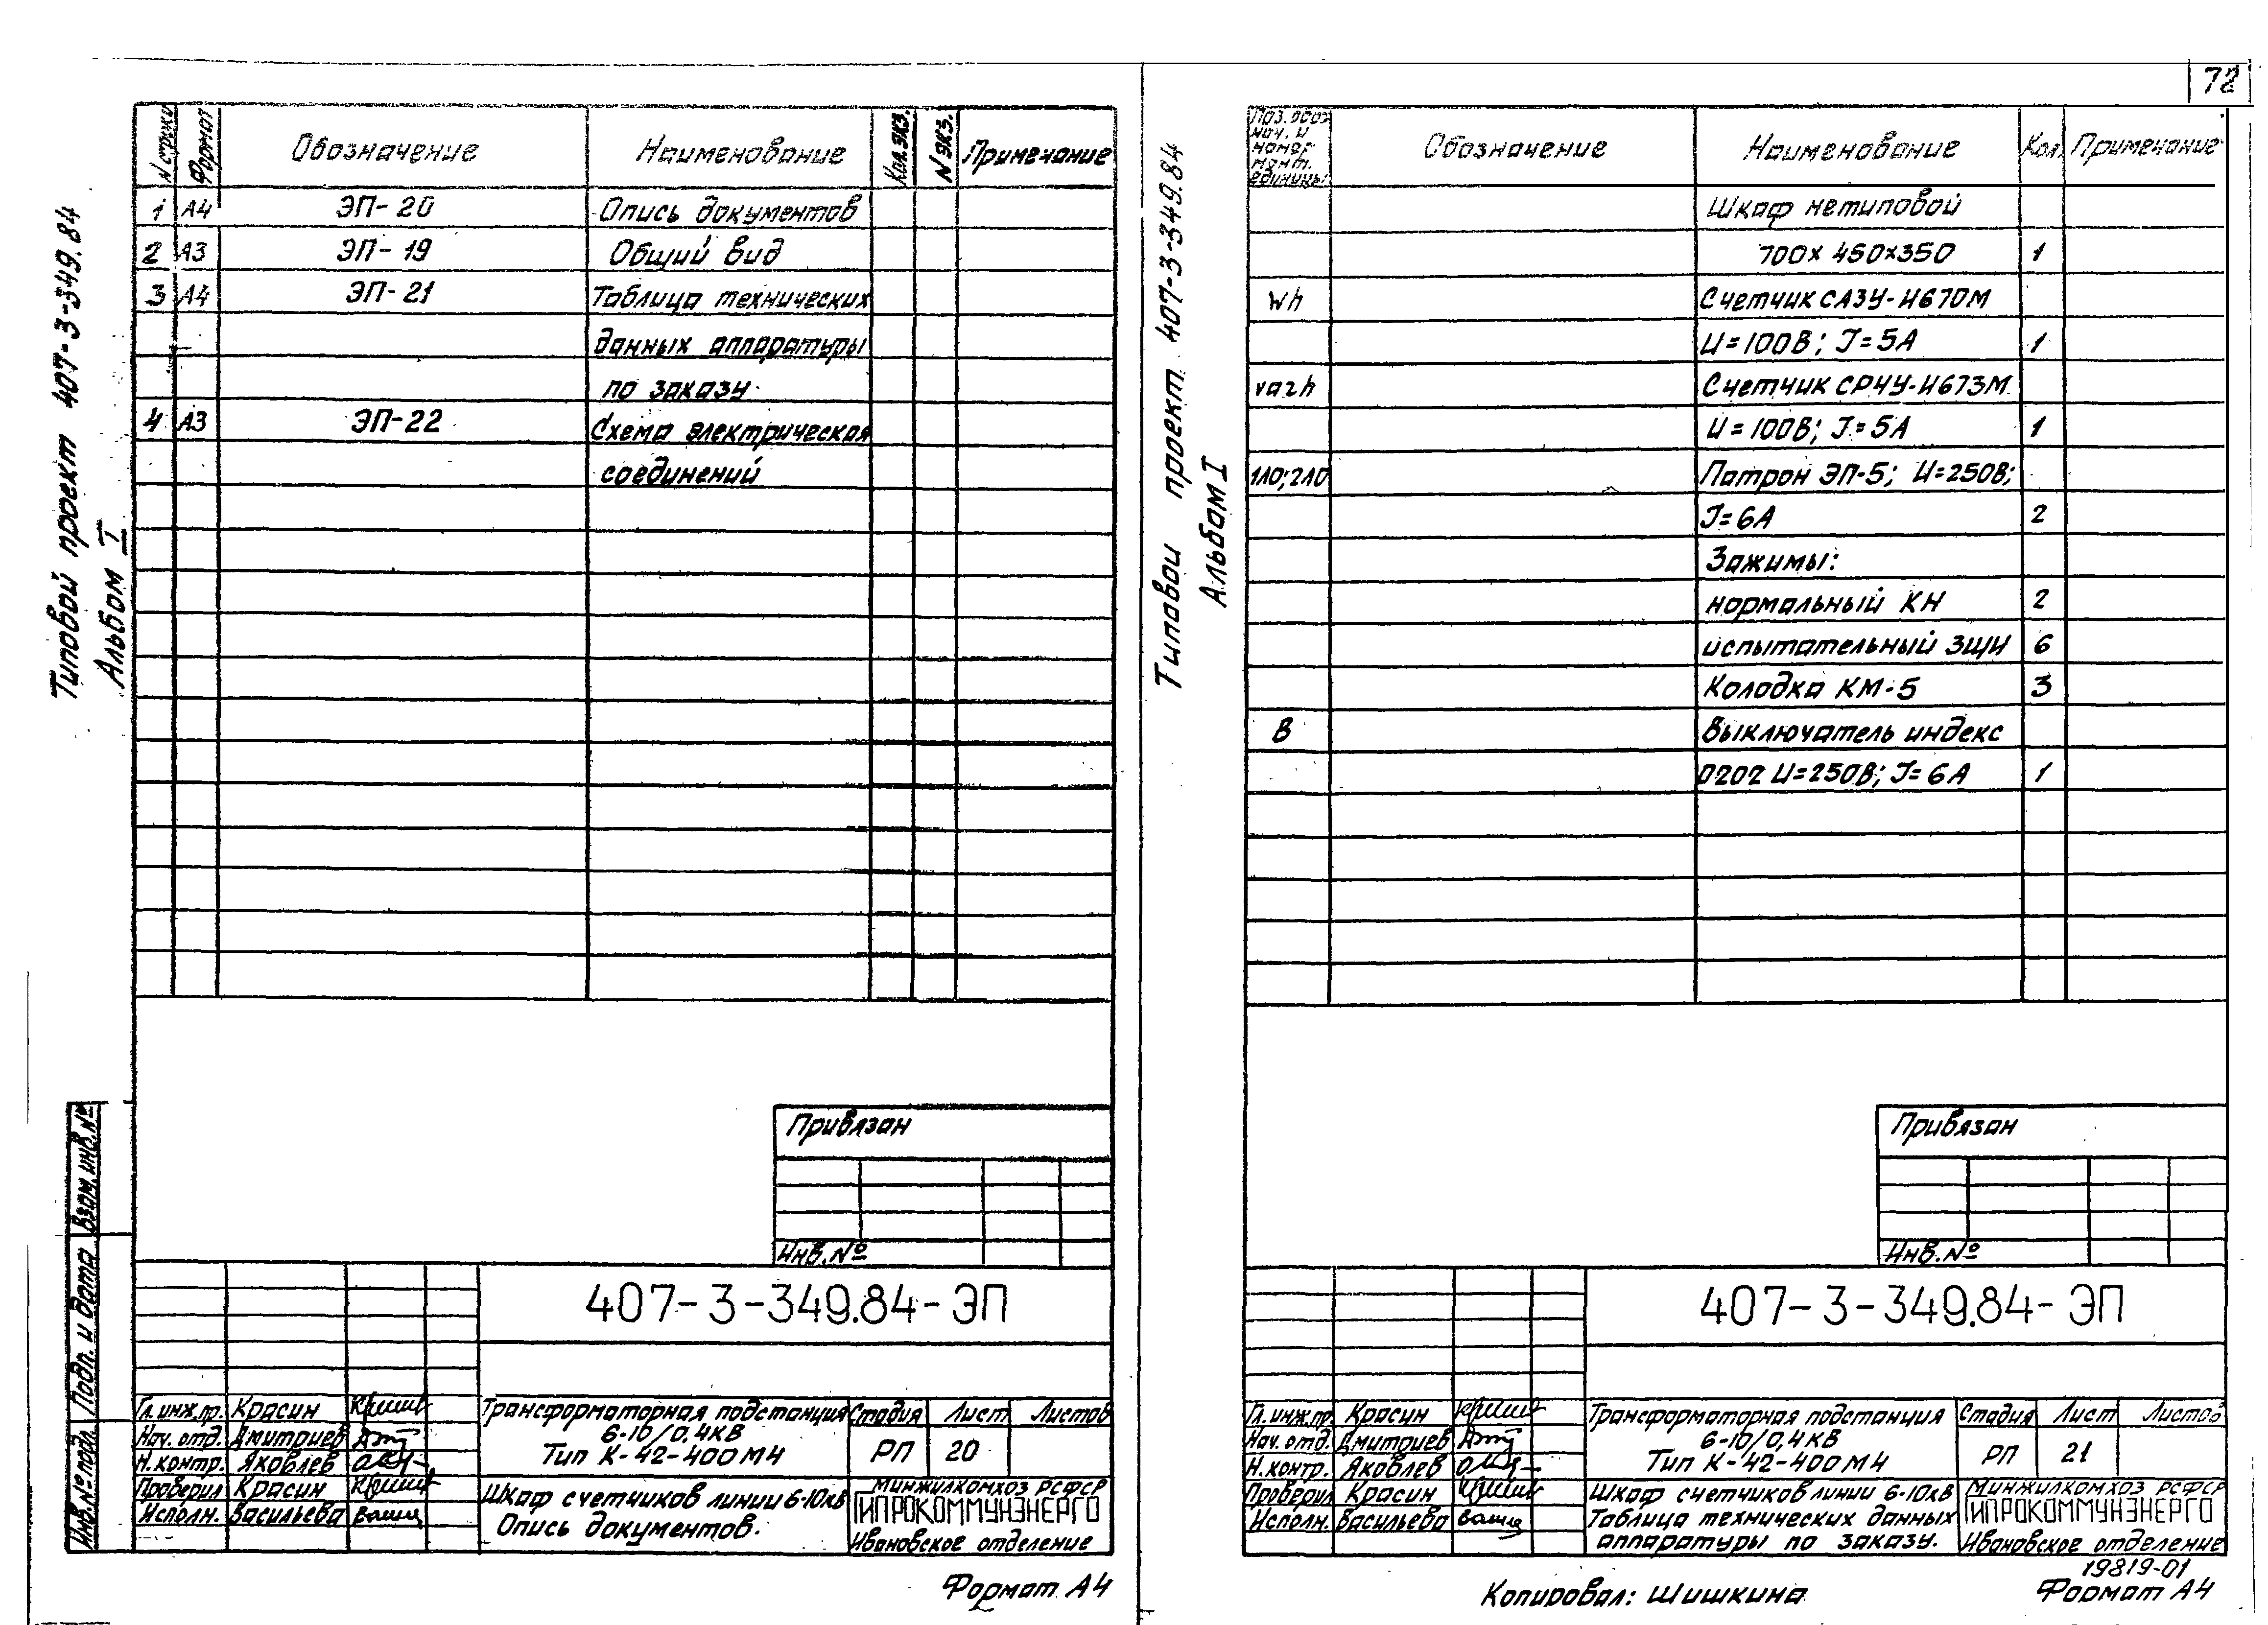 72
Типовой проект 407-3-349.84
Альбом I
N строки Формат Обозначение Наименование Кол. экз. N экз. Примечание
1 А4 ЭП-20 Опись документов
2 А3 ЭП-19 Общий вид
3 А4 ЭП-21 Таблица технических
данных аппаратуры
по заказу
4 А3 ЭП-22 Схема электрическая
соединений
Привязан
Инв.№
407-3-349.84-ЭП
Гл.инж.пр. Красин
Нач. отд. Дмитриев
Н.контр. Яковлев
Проверил Красин
Исполн. Васильева
Трансформаторная подстанция
6-10/0,4кВ
Тип К-42-400М4
Стадия Лист Листов
РП 20
Шкаф счетчиков линии 6-10кВ
Опись документов.
Минжилкомхоз РСФСР
ГИПРОКОММУНЭНЕРГО
Ивановское отделение
Инв.№ подл. Подп. и дата Взам.инв.№
Формат А4
Типовой проект 407-3-349.84
Альбом I
Поз. обоз
нач. и
номер
монт.
единицы
Обозначение Наименование Кол. Примечание
Шкаф нетиповой
700х450х350 1
Wh Счетчик СА3У-И670М
U=100В; J=5А 1
varh Счетчик СР4У-И673М
U=100В; J=5А 1
1ЛО;2ЛО Патрон ЭП-5; U=250В;
J=6А 2
Зажимы:
нормальный КН 2
испытательный ЗЩИ 6
Колодка КМ-5 3
В Выключатель индекс
0202 U=250В; J=6А 1
Привязан
Инв.№
407-3-349.84-ЭП
Гл.инж.пр. Красин
Нач. отд. Дмитриев
Н.контр. Яковлев
Проверил Красин
Исполн. Васильева
Трансформаторная подстанция
6-10/0,4кВ
Тип К-42-400М4
Стадия Лист Листов
РП 21
Шкаф счетчиков линии 6-10кВ
Таблица технических данных
аппаратуры по заказу.
Минжилкомхоз РСФСР
ГИПРОКОММУНЭНЕРГО
Ивановское отделение
19819-01
Копировал: Шишкина
Формат А4